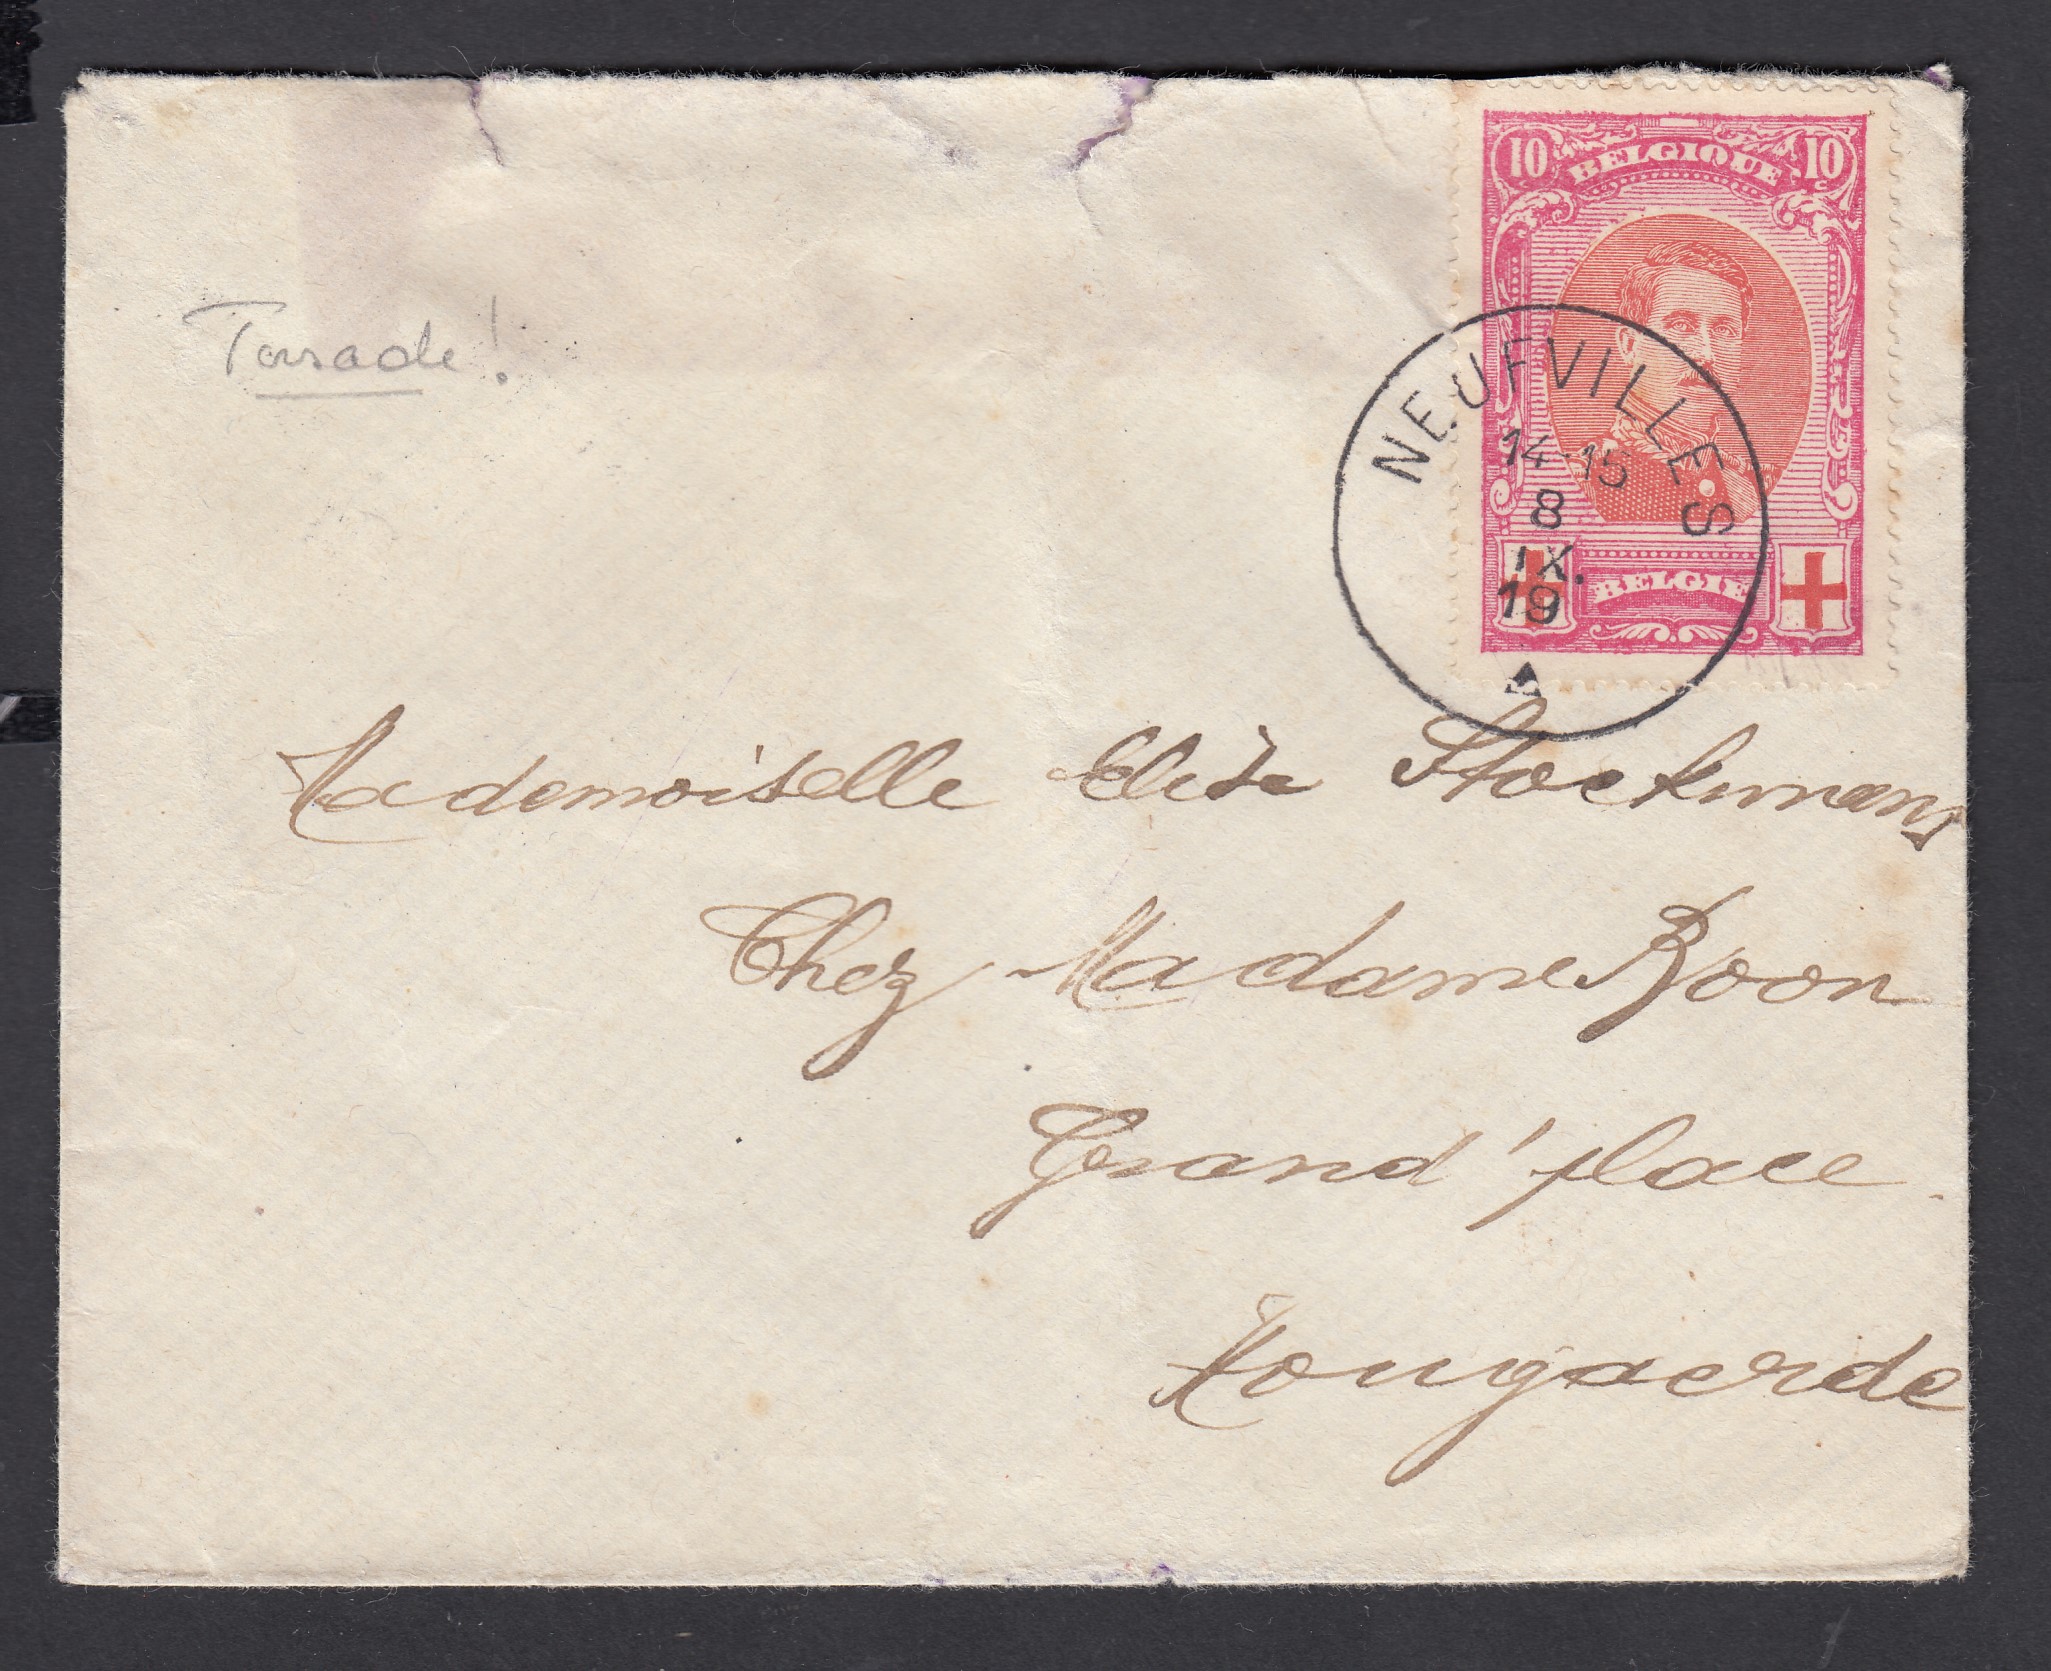 10 BELGIQUE 10
Torsade!
NEUFVILLES
14-15
8
IX.
19
BELGIE
Mademoiselle Elise Stockmans
Chez Madame Roon
Grand'place.
Hougaerde